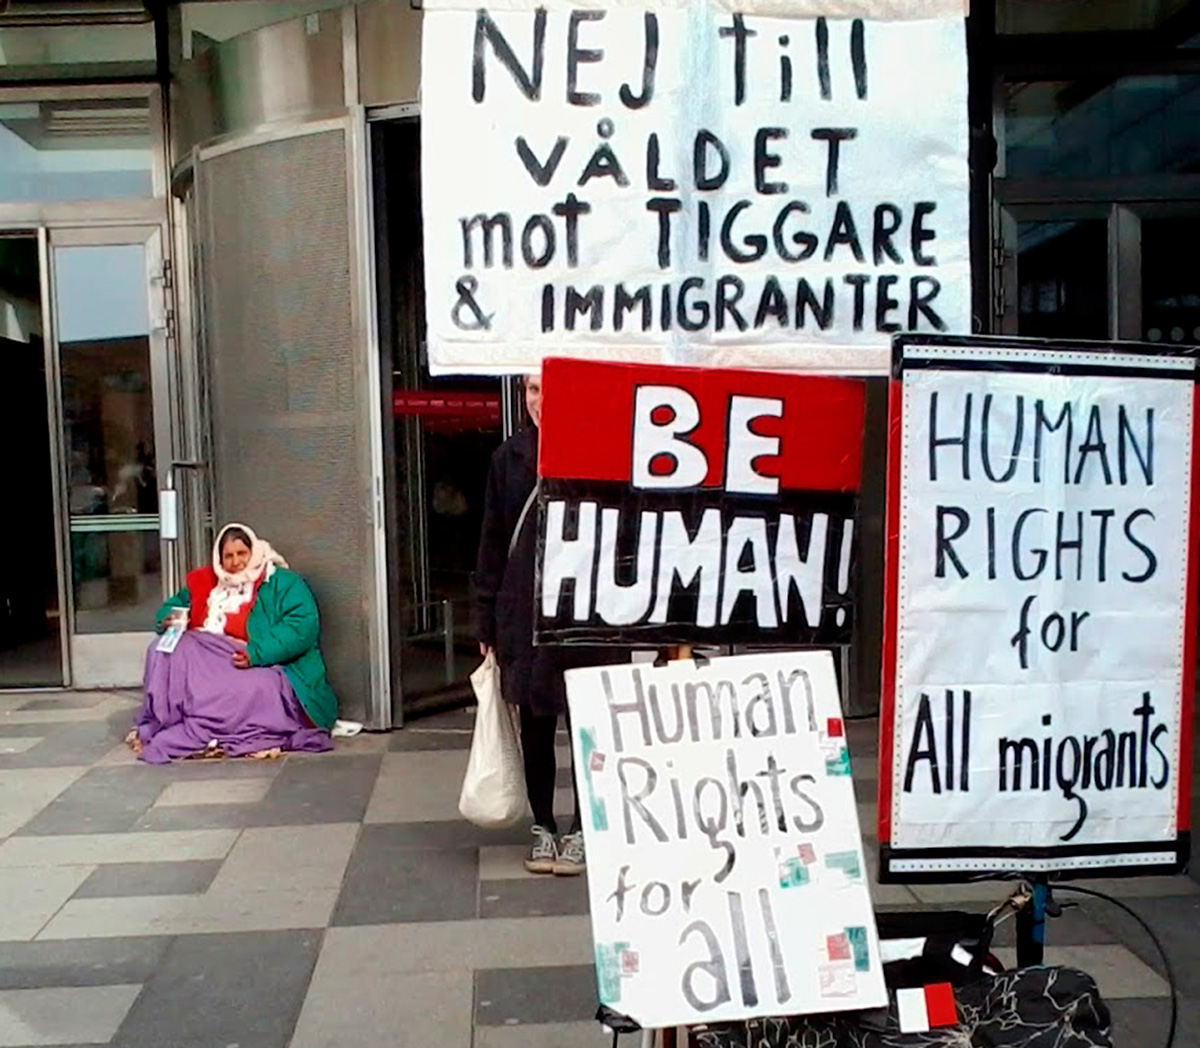 NEJ till
VÅLDET
mot TIGGARE
& IMMIGRANTER
BE
HUMAN!
HUMAN
RIGHTS
for
All migrants
Human
Rights
for
all